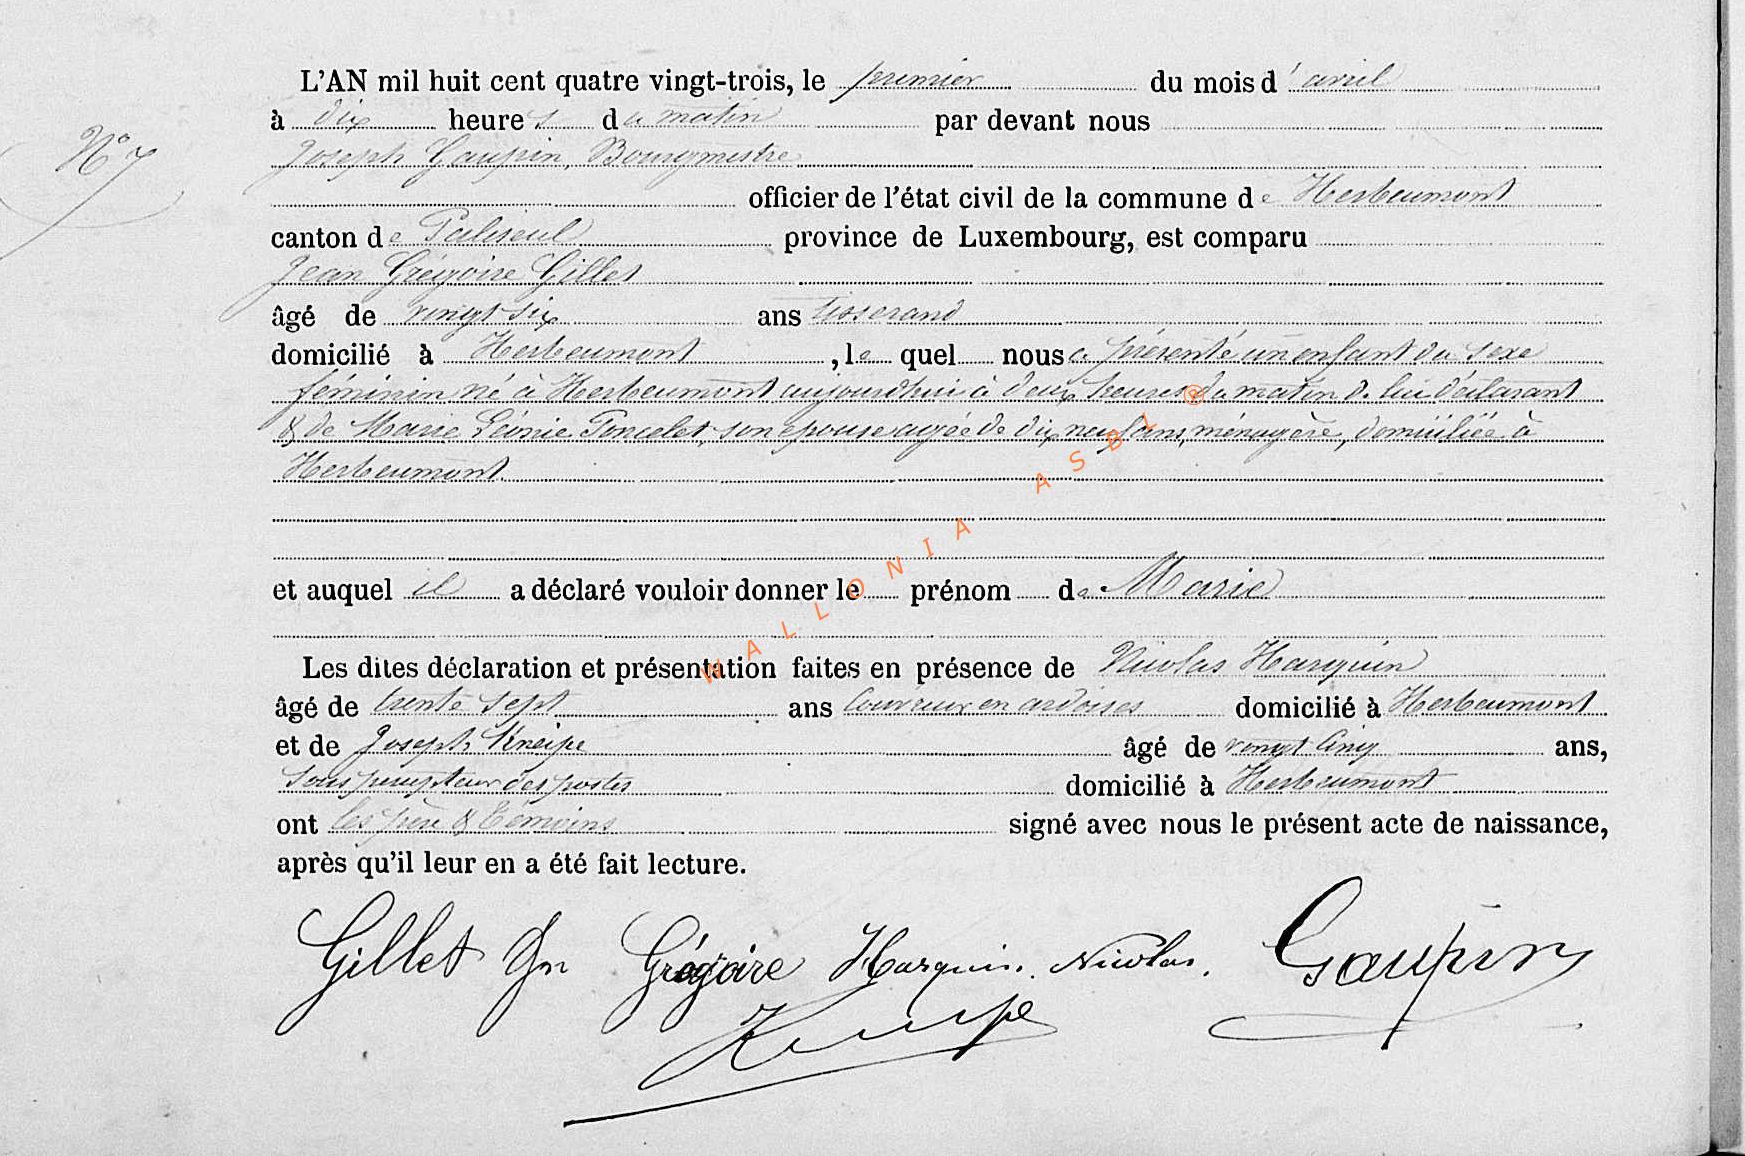 L'AN mil huit cent quatre vingt-trois, le premier du mois d'avril
N° 7
à dix heures du matin par devant nous
Joseph Gaupin, Bourgmestre
officier de l'état civil de la commune de Herbeumont
canton de Paliseul province de Luxembourg, est comparu
Jean Grégoire Gillet
âgé de vingt six ans tisserand
domicilié à Herbeumont, le quel nous a présenté un enfant du sexe
féminin né à Herbeumont aujourdhui à deux heures du matin de lui déclarant
& de Marie Léonie Poncelet, son épouse agée de dix neuf ans, ménagère, domiciliée à
Herbeumont.
et auquel il a déclaré vouloir donner le prénom de Marie
Les dites déclaration et présentation faites en présence de Nicolas Harquin
âgé de trente sept ans couvreur en ardoises domicilié à Herbeumont
et de Joseph Kneipe âgé de vingt cinq ans,
Sous percepteur des postes domicilié à Herbeumont
ont les père & témoins signé avec nous le présent acte de naissance,
après qu'il leur en a été fait lecture.
Gillet Jn Grégoire Harquin. Nicolas. Gaupin
Kneipe
WALLONIA ASBL ®